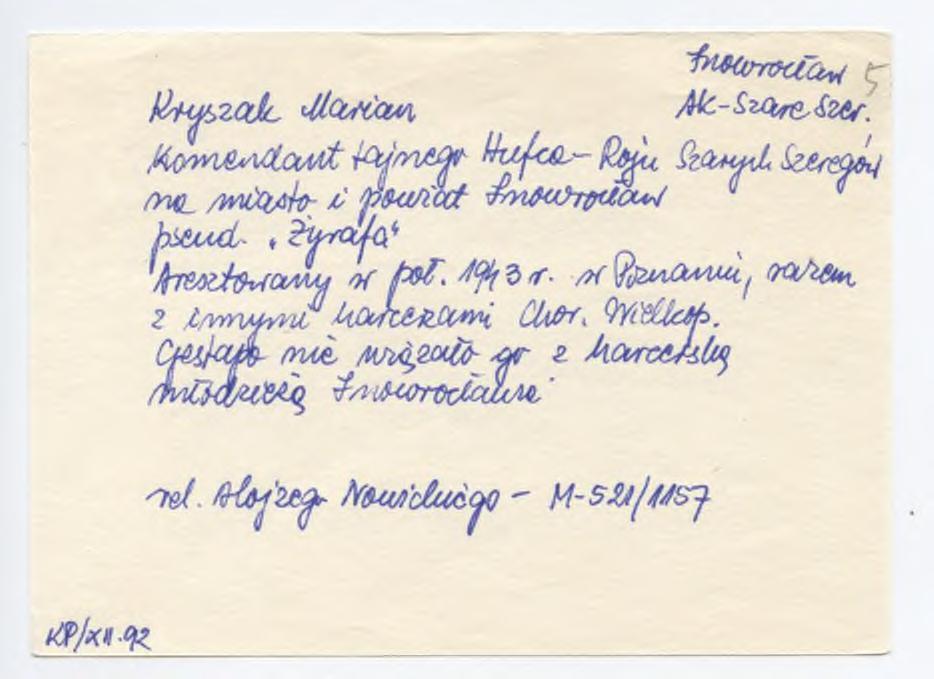 Inowrocław 5
AK-Szare Szer.
Kryszak Marian
Komendant tajnego Hufca - Roju Szarych Szeregów
na miasto i powiat Inowrocław
pseud. „Żyrafa"
Aresztowany w poł. 1943 r. w Poznaniu, razem
z innymi harcerzami Chor. Wielkop.
Gestapo nie wiązało go z harcerską
młodzieżą Inowrocławia
rel. Alojzego Nowickiego - M-521/1157
KP/XII.92